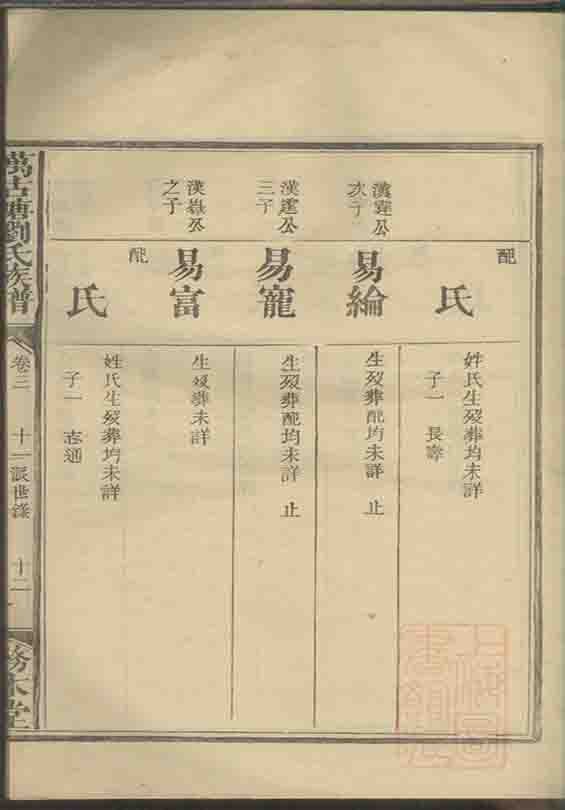 配
氏
姓氏生歿葬均未詳
子一 長壽
漢建公
次子
易綸
生歿葬配均未詳 止
漢建公
三子
易寵
生歿葬配均未詳 止
漢嶽公
之子
易富
生歿葬未詳
配
氏
姓氏生歿葬均未詳
子一 志通
萬古塘劉氏族譜
卷三
十一派世錄
十二
務本堂
上海圖
書館藏